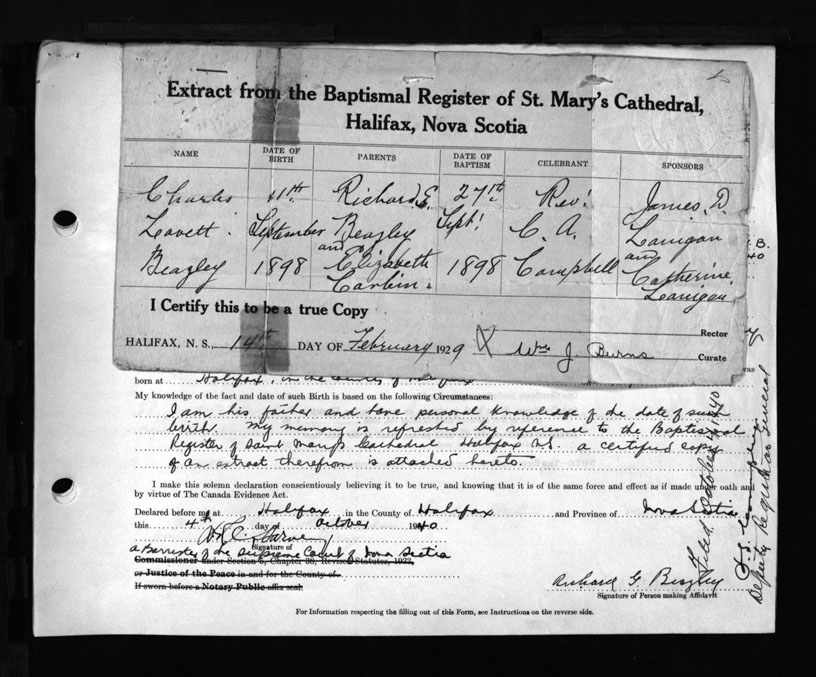 Extract from the Baptismal Register of St. Mary's Cathedral,
Halifax, Nova Scotia
NAME DATE OF BIRTH PARENTS DATE OF BAPTISM CELEBRANT SPONSORS
Charles 11th Richard E. 27th Rev. James D.
Lovett September Beazley Sept. C. A. Lanigan
and of and
Beazley 1898 Elizabeth 1898 Campbell Catherine
Corbin. Lanigan
I Certify this to be a true Copy
Rector
HALIFAX, N. S., 14th DAY OF February 1929 Wm J. Burns
Curate
was
born at Halifax, in the County of Halifax
My knowledge of the fact and date of such Birth is based on the following Circumstances:
I am his father and have personal knowledge of the date of such
birth. My memory is refreshed by reference to the Baptismal
Register of Saint Mary's Cathedral Halifax N.S. a certified copy
of an extract therefrom is attached hereto.
I make this solemn declaration conscientiously believing it to be true, and knowing that it is of the same force and effect as if made under oath and
by virtue of The Canada Evidence Act.
Declared before me at Halifax in the County of Halifax and Province of Nova Scotia
this 4th day of October 1940
Signature of
a Barrister of the Supreme Court of Nova Scotia
Commissioner under Section 6, Chapter 38, Revised Statutes, 1923,
or Justice of the Peace in and for the County of
If sworn before a Notary Public affix seal
Signature of Person making Affidavit
For Information respecting the filling out of this Form, see Instructions on the reverse side.
Filed October
Deputy Registrar General